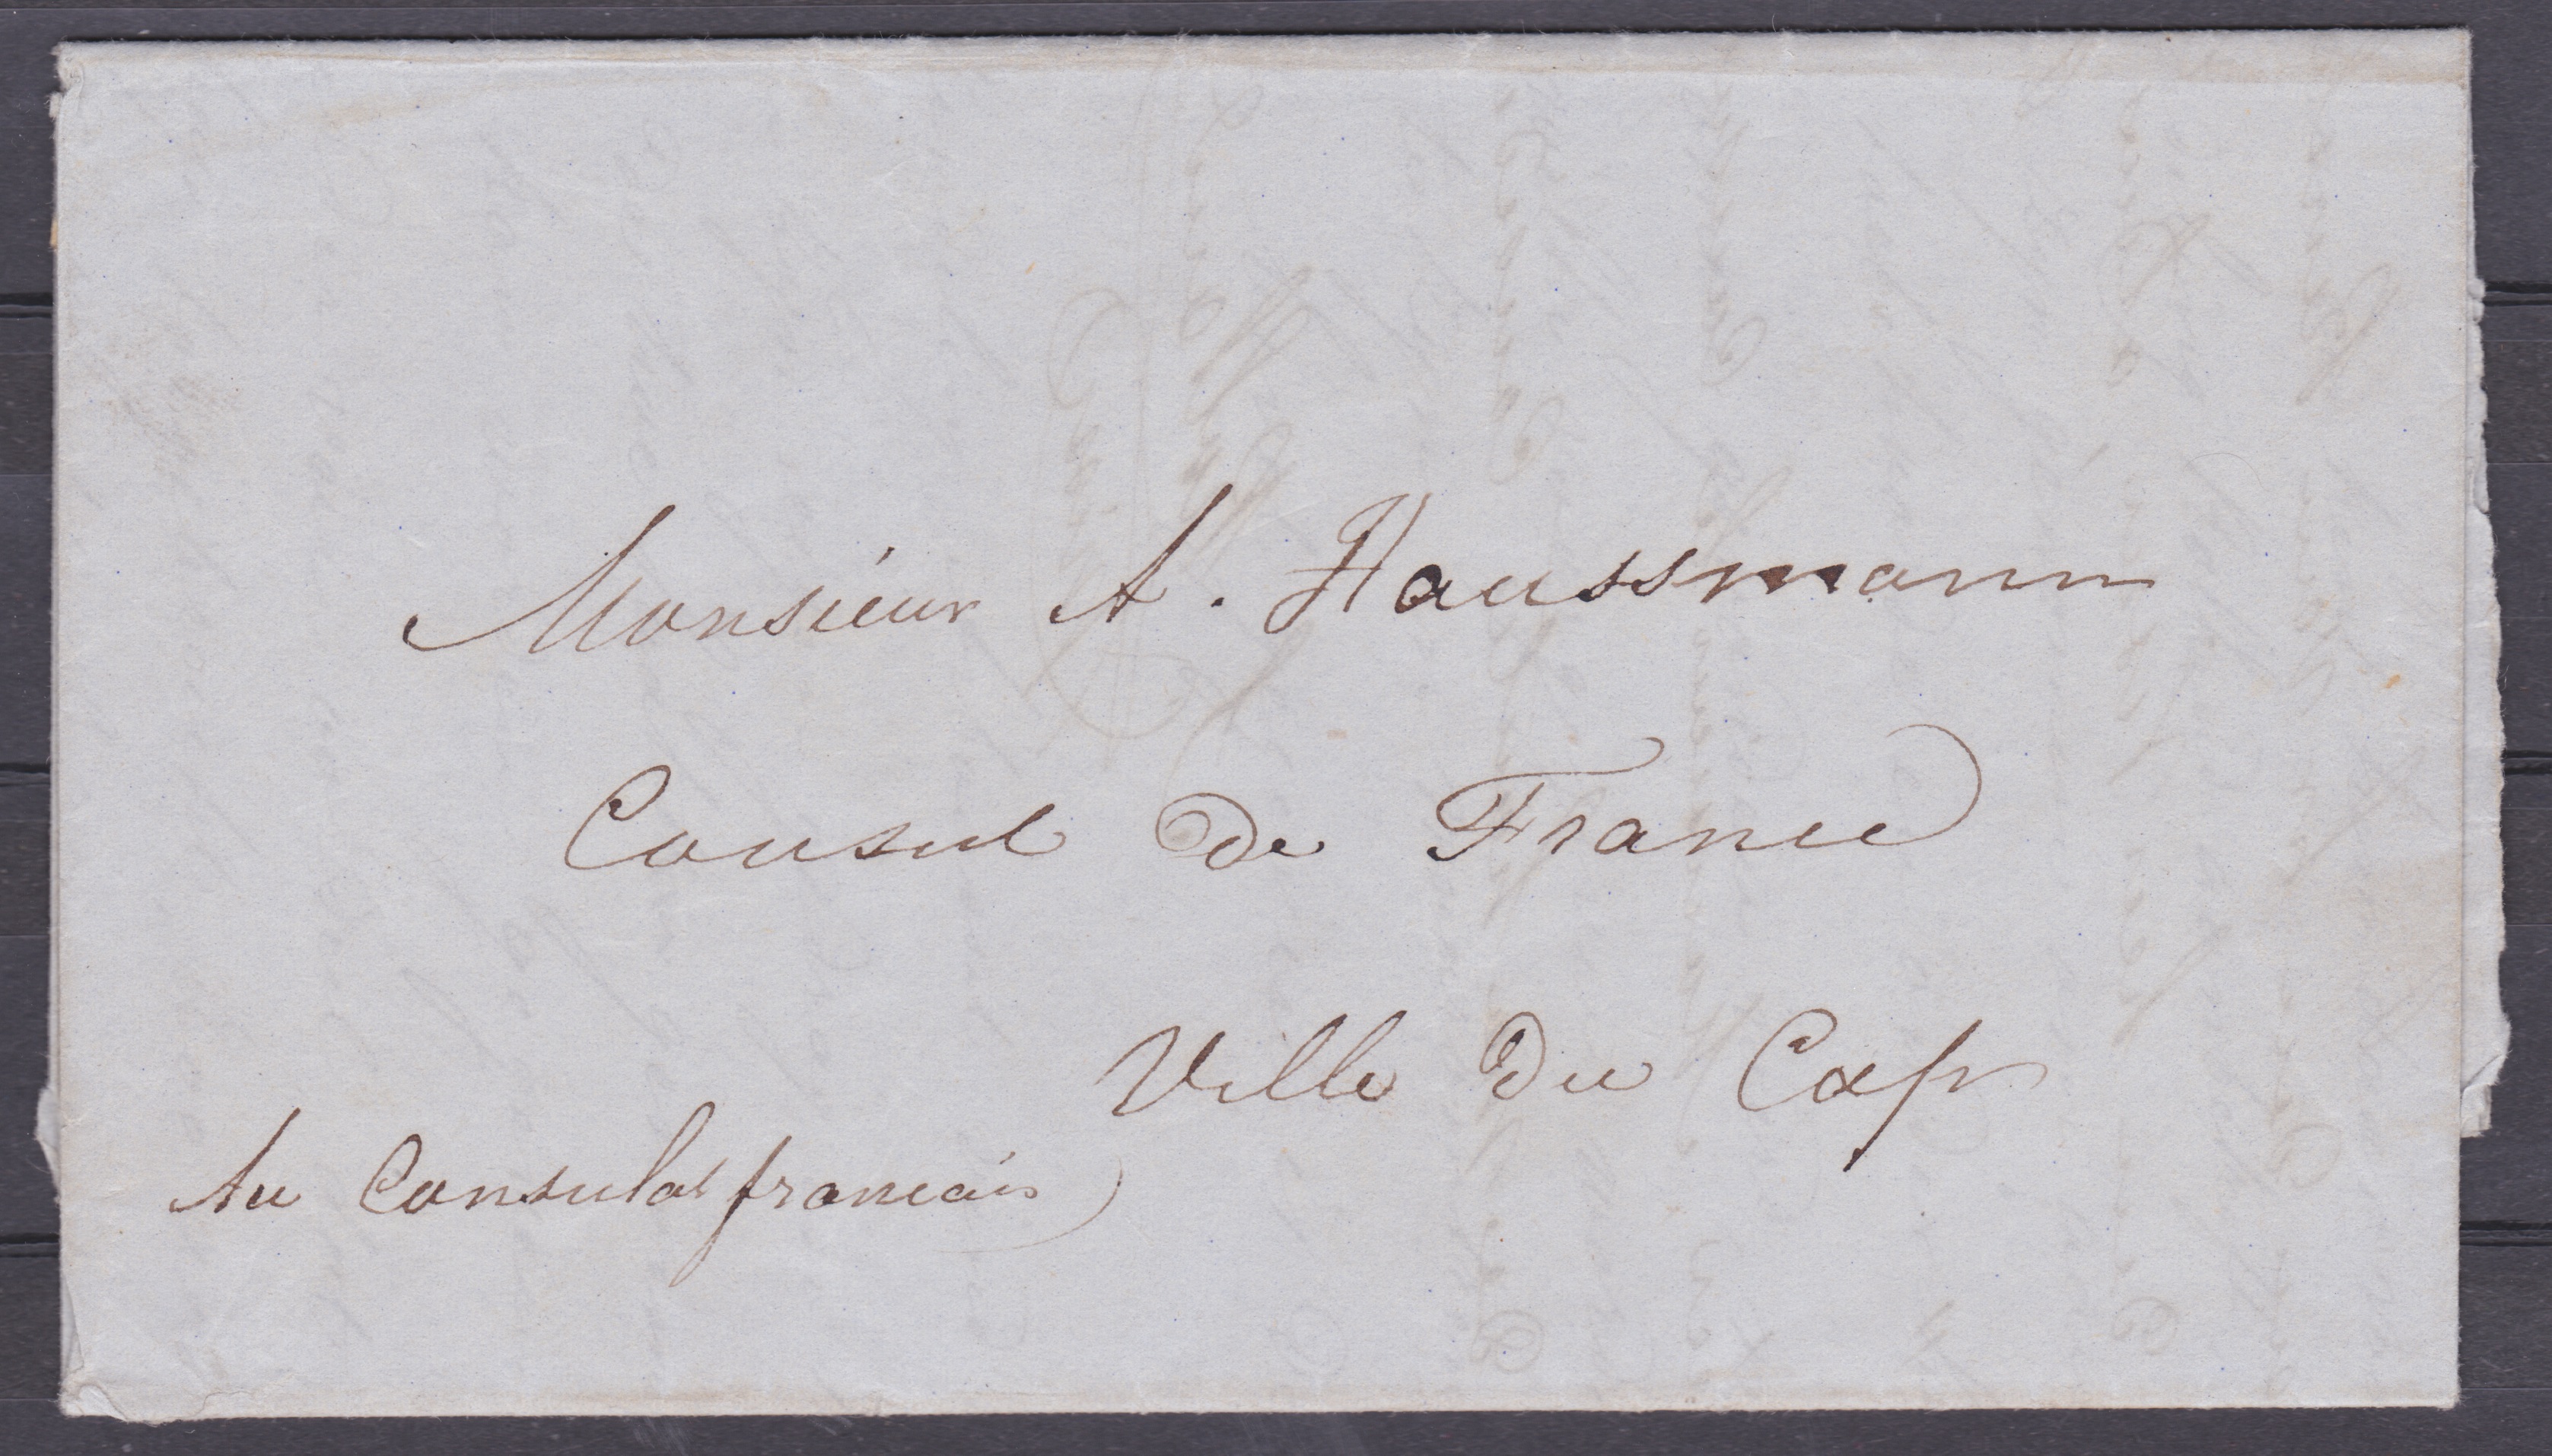 Monsieur A. Haussmann
Consul de France
Ville du Cap
Au Consulat francais